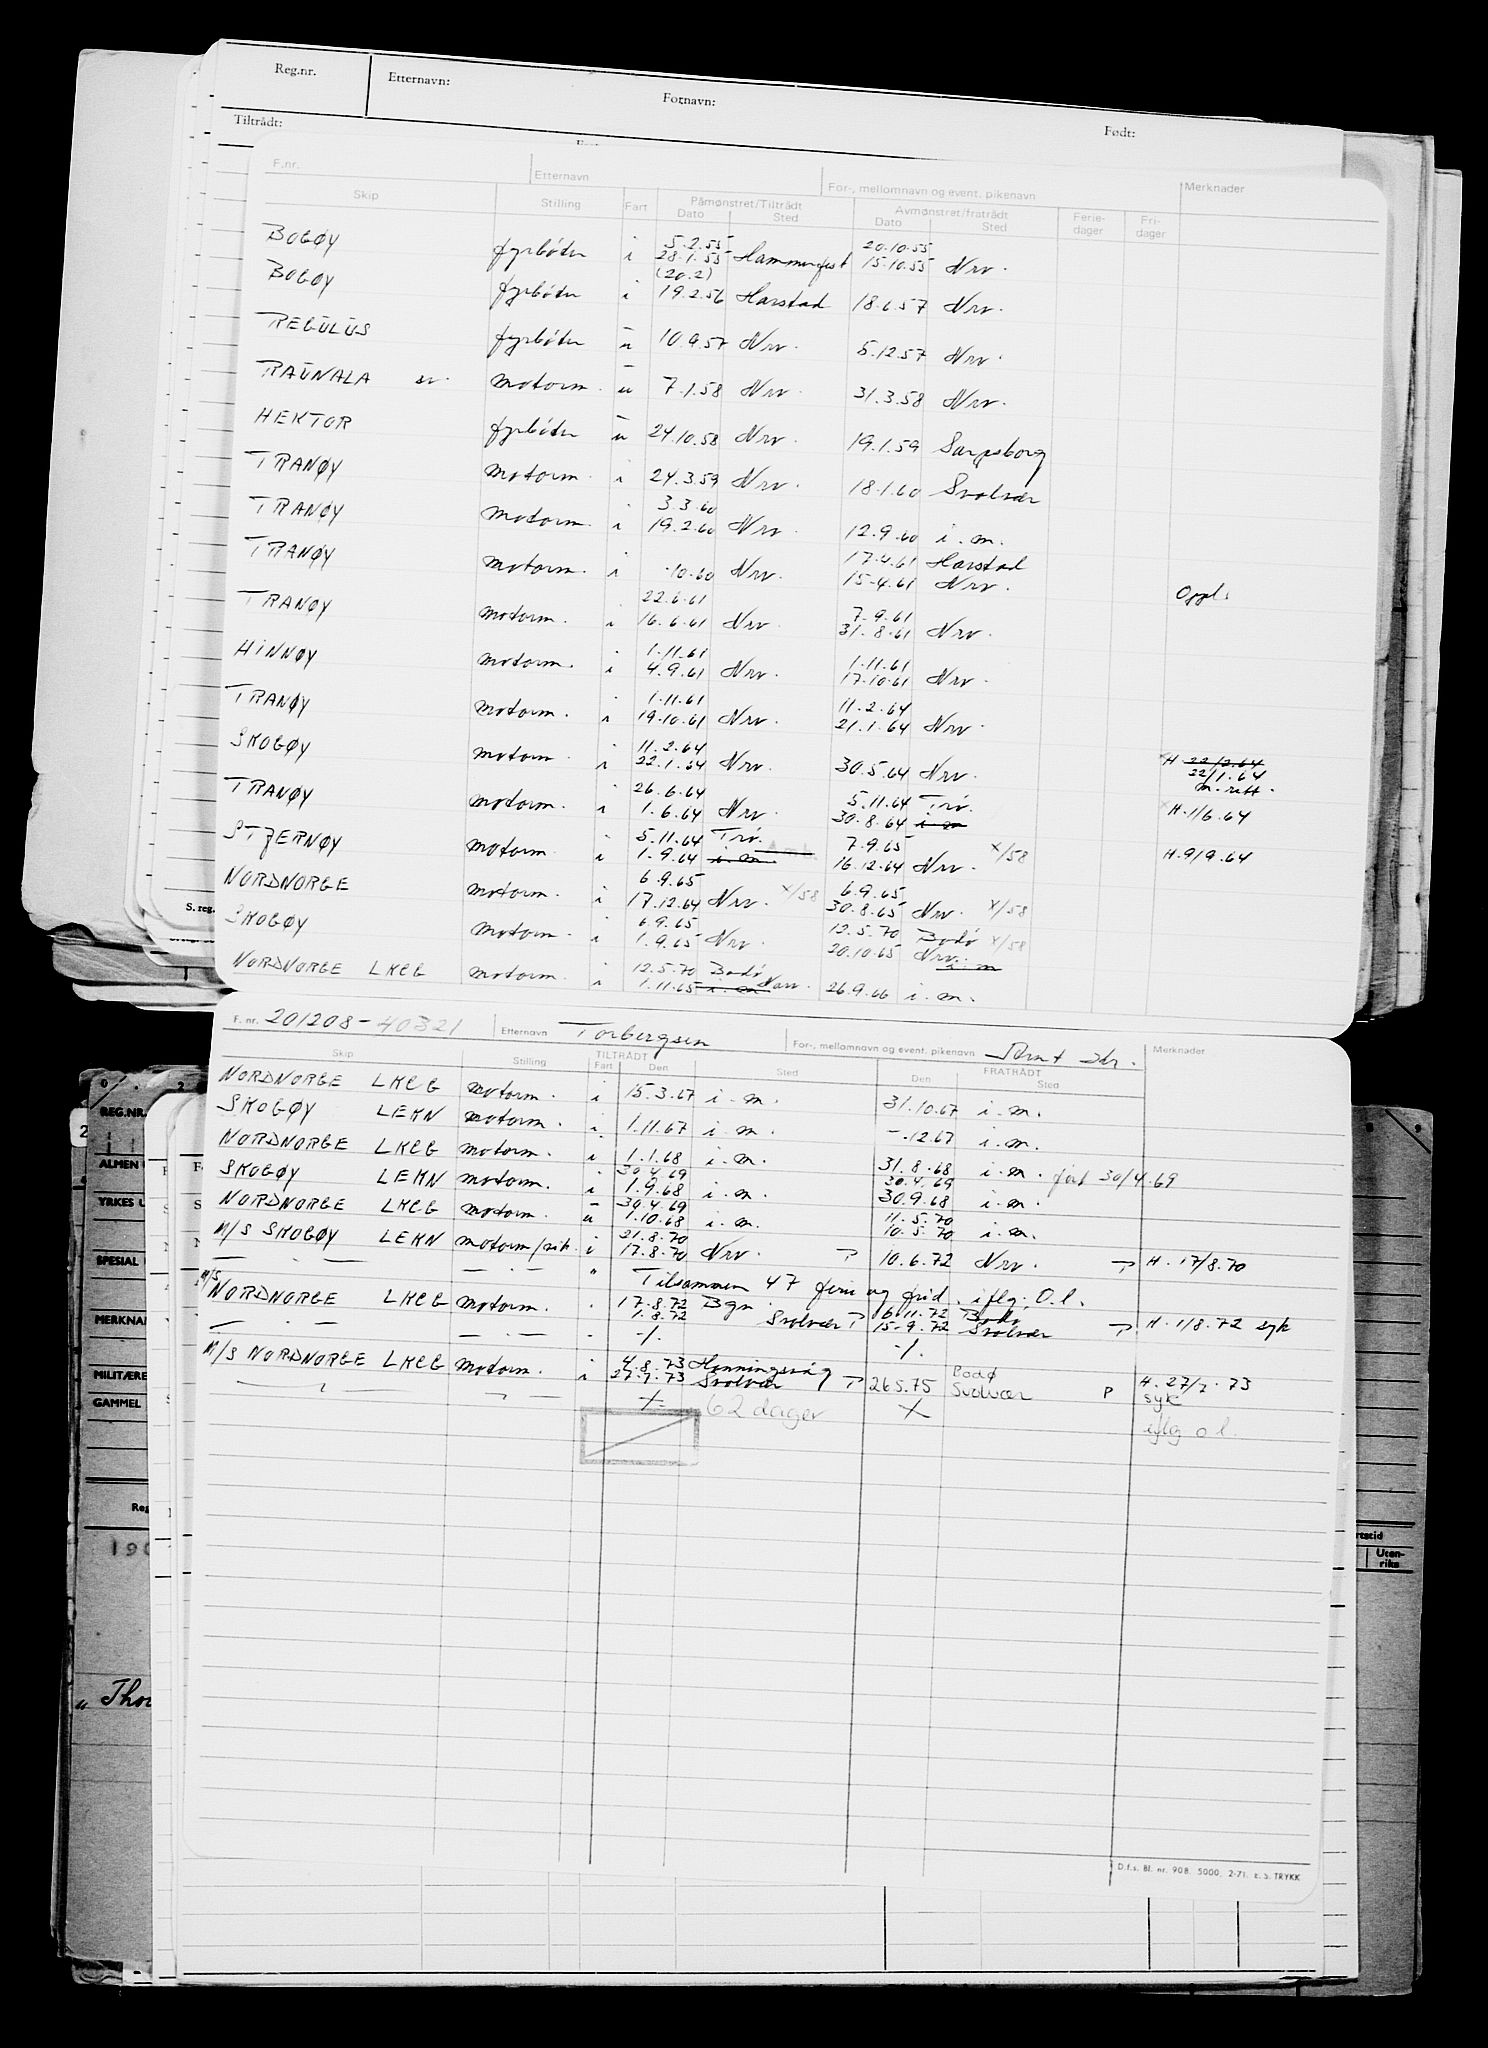 Reg.nr. Etternavn: Fornavn: Født:
Tiltrådt:
F.nr. Etternavn For-, mellomnavn og event. pikenavn Merknader
Skip Stilling Fart Påmønstret/Tiltrådt Avmønstret/fratrådt Ferie- Fri-
Dato Sted Dato Sted dager dager
5.2.55 20.10.55
BOGØY fyrbøder i 28.1.55 Hammerfest 15.10.55 Nrv.
(20.2)
BOGØY fyrbøder i 19.2.56 Harstad 18.6.57 Nrv.
REGULUS fyrbøder u 10.9.57 Nrv. 5.12.57 Nrv.
RAUNALA sv. motorm. u 7.1.58 Nrv. 31.3.58 Nrv.
HEKTOR fyrbøder u 24.10.58 Nrv. 19.1.59 Sarpsborg
TRANØY motorm. i 24.3.59 Nrv. 18.1.60 Svolvær
3.3.60
TRANØY motorm. i 19.2.60 Nrv. 12.9.60 i.m.
17.4.61 Harstad
TRANØY motorm. i .10.60 Nrv. 15.4.61 Nrv. Oppl.
22.6.61 7.9.61
TRANØY motorm. i 16.6.61 Nrv. 31.8.61 Nrv.
1.11.61 1.11.61
HINNØY motorm. i 4.9.61 Nrv. 17.10.61 Nrv.
1.11.61 11.2.64
TRANØY motorm. i 19.10.61 Nrv. 21.1.64 Nrv.
11.2.64
SKOGØY motorm. i 22.1.64 Nrv. 30.5.64 Nrv. H 22/2.64
22/1.64
m. rett.
26.6.64 5.11.64 Trø.
TRANØY motorm. i 1.6.64 Nrv. 30.8.64 i m H.1/6.64
5.11.64 Trø. 7.9.65
STJERNØY motorm. i 1.9.64 i m. 16.12.64 Nrv. x/58 H.9/9.64
6.9.65 6.9.65
NORDNORGE motorm. i 17.12.64 Nrv. x/58 30.8.65 Nrv. x/58
6.9.65 12.5.70 Bodø
SKOGØY motorm. i 1.9.65 Nrv. 20.10.65 Nrv. i.m x/58
12.5.70 Bodø
NORDNORGE LKCG motorm. i 1.11.65 i.m Narv. 26.9.66 i.m.
S. reg.
F. nr. 201208-40321 Etternavn Torbergsen For-, mellomnavn og event. pikenavn Arnt Merknader
Skip Stilling TILTRÅDT FRATRÅDT
Fart Den Sted Den Sted
NORDNORGE LKCG motorm. i 15.3.67 i.m. 31.10.67 i.m.
SKOGØY LEKN motorm. i 1.11.67 i.m. -.12.67 i.m.
NORDNORGE LKCG motorm. i 1.1.68 i.m. 31.8.68 i.m.
30.4.69 30.4.69
SKOGØY LEKN motorm. i 1.9.68 i.m. 30.9.68 i.m.ført 30/4.69
30.4.69 11.5.70
NORDNORGE LKCG motorm. u 1.10.68 i.m. 10.5.70 i.m.
21.8.70
M/S SKOGØY LEKN motorm/rik. i 17.8.70 Nrv. P 10.6.72 Nrv. P H.17/8.70
— . — — . — " Tilsammen 47 ferie og frid. iflg. O.l.
17.8.72 Bgn 6.11.72 Bodø
M/S NORDNORGE LKCG motorm. . 1.8.72 Svolvær P 15.9.72 Svolvær P H.1/8.72 syk
— . — — . — - -/. -/.
4.8.73 Honningsvåg Bodø
M/S NORDNORGE LKCG motorm. i 27.7.73 Svolvær P 26.5.75 Svolvær P H.27/7.73
syk
X 62 dager X iflg o l.
D.f.s. Bl. nr. 908. 5000. 2-71. E.S. TRYKK
REG.NR.
ALMEN
YRKES
SPESIAL
MERKNA
MILITÆRE
GAMMEL
Reg
190
„ Tho
Uten-
riks